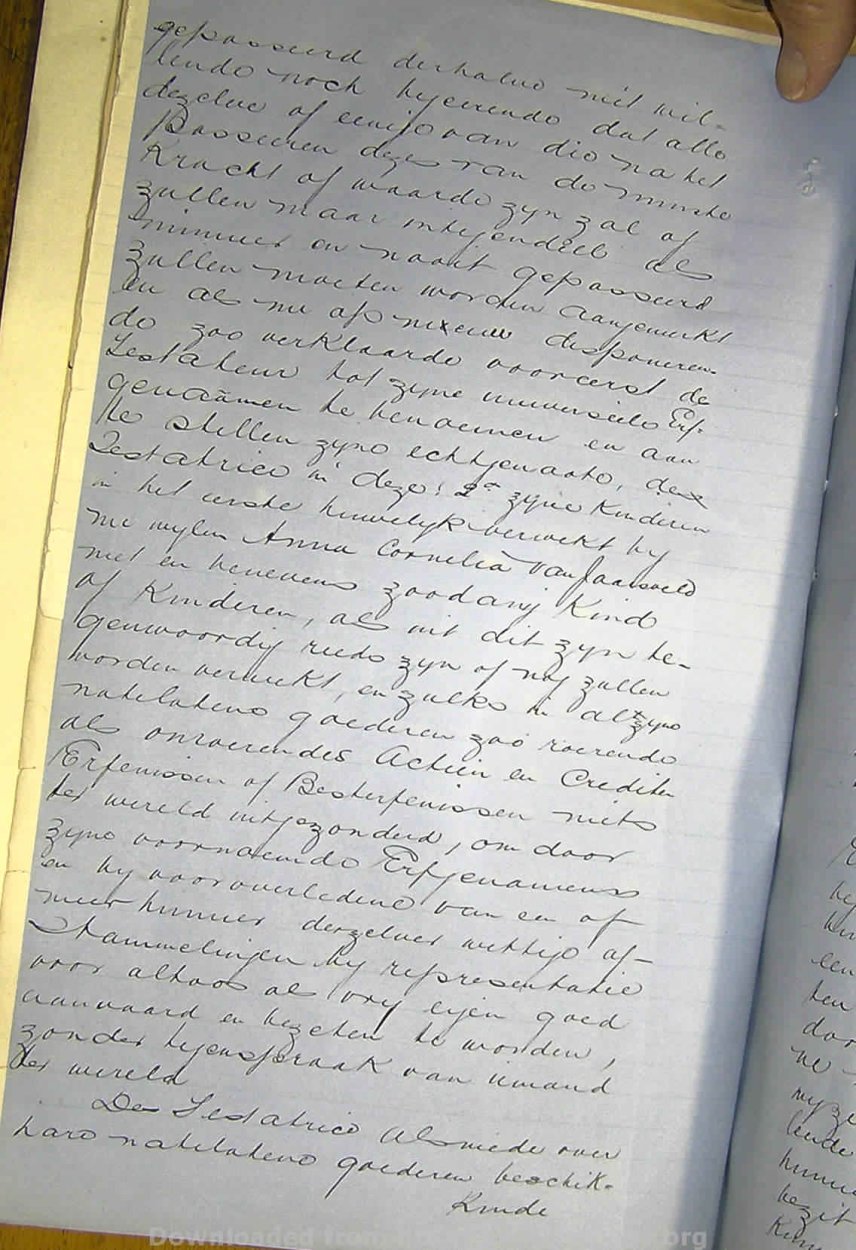 gepasseerd derhalve niet wil-
lende noch begeerende dat alle
dezelve of eenige van die na het
Passeeren dezes van de minste
Kracht of waarde zyn zal of
zullen maar integendeel als
nimmer en nooit gepasseerd
zullen moeten worden aangemerkt
en als nu op nieuw disponeren-
de zoo verklaarde vooreerst de
Testateur tot zyne universeele Erf-
genaamen te benoemen en aan
te stellen zyne echtgenoote, de
Testatrice in deze; 2e zyne Kinderen
in het eerste huwelyk verwekt by
nu wylen Anna Cornelia van Jaarsveld
met en benevens zoodanig Kind
of Kinderen, als uit dit zyn te-
genwoordig reeds zyn of nog zullen
worden verwekt, en zulks in al zyne
natelatene goederen zoo roerende
als onroerendes Actien en Crediten
Erfenissen of Besterfenissen niets
ter wereld uitgezonderd, om door
zyne voornoemde Erfgenamens
en by vooroverlydene van een of
meer hunner derzelver wettige af-
stammelingen by representatie
voor altoos als vry eigen goed
aanvaard en bezeten te worden,
zonder tegenspraak van iemand
ter wereld
De Testatrice alsmede over
hare natelatene goederen beschik-
kende
Downloaded from .org